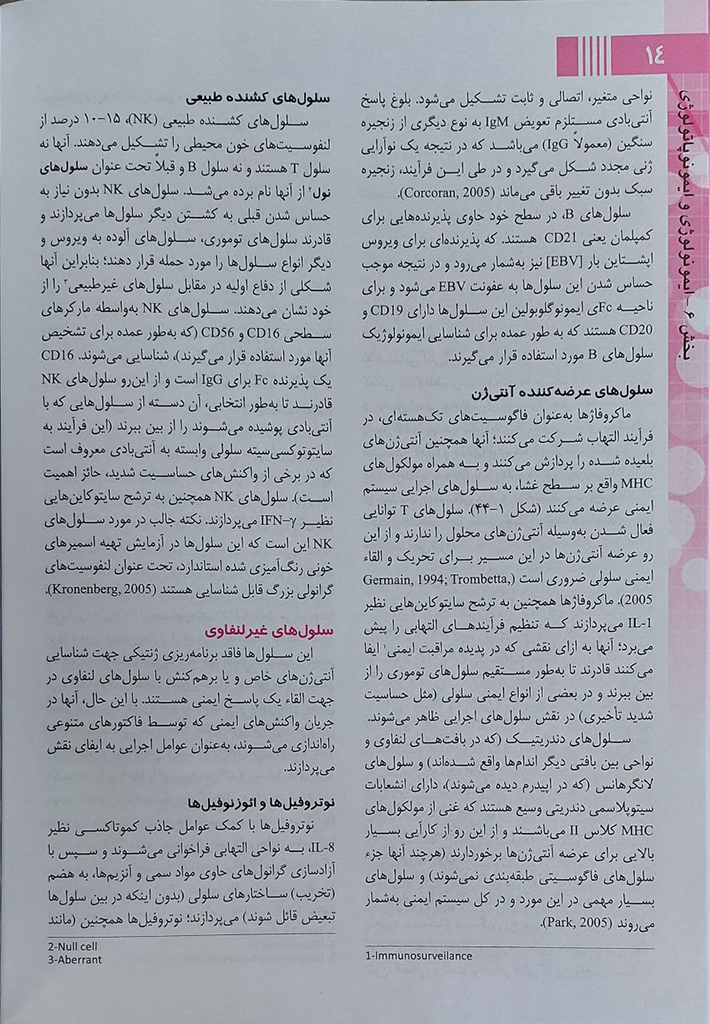 ۱۴
بخش ۶ - ایمونولوژی و ایمونوپاتولوژی
نواحی متغیر، اتصالی و ثابت تشکیل می‌شود. بلوغ پاسخ
آنتی‌بادی مستلزم تعویض IgM به نوع دیگری از زنجیره
سنگین (معمولاً IgG) می‌باشد که در نتیجه یک نوآرایی
ژنی مجدد شکل می‌گیرد و در طی این فرآیند، زنجیره
سبک بدون تغییر باقی می‌ماند (Corcoran, 2005).
سلول‌های B، در سطح خود حاوی پذیرنده‌هایی برای
کمپلمان یعنی CD21 هستند. که پذیرنده‌ای برای ویروس
اپشتاین بار [EBV] نیز به‌شمار می‌رود و در نتیجه موجب
حساس شدن این سلول‌ها به عفونت EBV می‌شود و برای
ناحیه Fcی ایمونوگلوبولین این سلول‌ها دارای CD19 و
CD20 هستند که به طور عمده برای شناسایی ایمونولوژیک
سلول‌های B مورد استفاده قرار می‌گیرند.
سلول‌های عرضه‌کننده آنتی‌ژن
ماکروفاژها به‌عنوان فاگوسیت‌های تک‌هسته‌ای، در
فرآیند التهاب شرکت می‌کنند؛ آنها همچنین آنتی‌ژن‌های
بلعیده شده را پردازش می‌کنند و به همراه مولکول‌های
MHC واقع بر سطح غشا، به سلول‌های اجرایی سیستم
ایمنی عرضه می‌کنند (شکل ۱-۴۴). سلول‌های T توانایی
فعال شدن به‌وسیله آنتی‌ژن‌های محلول را ندارند و از این
رو عرضه آنتی‌ژن‌ها در این مسیر برای تحریک و القاء
ایمنی سلولی ضروری است (Germain, 1994; Trombetta,
2005). ماکروفاژها همچنین به ترشح سایتوکاین‌هایی نظیر
IL-1 می‌پردازند که تنظیم فرآیندهای التهابی را پیش
می‌برد؛ آنها به ازای نقشی که در پدیده مراقبت ایمنی۱ ایفا
می‌کنند قادرند تا به‌طور مستقیم سلول‌های توموری را از
بین ببرند و در بعضی از انواع ایمنی سلولی (مثل حساسیت
شدید تأخیری) در نقش سلول‌های اجرایی ظاهر می‌شوند.
سلول‌های دندریتیک (که در بافت‌های لنفاوی و
نواحی بین بافتی دیگر اندام‌ها واقع شده‌اند) و سلول‌های
لانگرهانس (که در اپیدرم دیده می‌شوند)، دارای انشعابات
سیتوپلاسمی دندریتی وسیع هستند که غنی از مولکول‌های
MHC کلاس II می‌باشند و از این رو از کارآیی بسیار
بالایی برای عرضه آنتی‌ژن‌ها برخوردارند (هرچند آنها جزء
سلول‌های فاگوسیتی طبقه‌بندی نمی‌شوند) و سلول‌های
بسیار مهمی در این مورد و در کل سیستم ایمنی به‌شمار
می‌روند (Park, 2005).
1-Immunosurveilance
سلول‌های کشنده طبیعی
سلول‌های کشنده طبیعی (NK)، ۱۵-۱۰ درصد از
لنفوسیت‌های خون محیطی را تشکیل می‌دهند. آنها نه
سلول T هستند و نه سلول B و قبلاً تحت عنوان سلول‌های
نول۲ از آنها نام برده می‌شد. سلول‌های NK بدون نیاز به
حساس شدن قبلی به کشتن دیگر سلول‌ها می‌پردازند و
قادرند سلول‌های توموری، سلول‌های آلوده به ویروس و
دیگر انواع سلول‌ها را مورد حمله قرار دهند؛ بنابراین آنها
شکلی از دفاع اولیه در مقابل سلول‌های غیرطبیعی۳ را از
خود نشان می‌دهند. سلول‌های NK به‌واسطه مارکرهای
سطحی CD16 و CD56 (که به‌طور عمده برای تشخیص
آنها مورد استفاده قرار می‌گیرند)، شناسایی می‌شوند. CD16
یک پذیرنده Fc برای IgG است و از این‌رو سلول‌های NK
قادرند تا به‌طور انتخابی، آن دسته از سلول‌هایی که با
آنتی‌بادی پوشیده می‌شوند را از بین ببرند (این فرآیند به
سایتوتوکسی‌سیته سلولی وابسته به آنتی‌بادی معروف است
که در برخی از واکنش‌های حساسیت شدید، حائز اهمیت
است). سلول‌های NK همچنین به ترشح سایتوکاین‌هایی
نظیر IFN-γ می‌پردازند. نکته جالب در مورد سلول‌های
NK این است که این سلول‌ها در آزمایش تهیه اسمیرهای
خونی رنگ‌آمیزی شده استاندارد، تحت عنوان لنفوسیت‌های
گرانولی بزرگ قابل شناسایی هستند (Kronenberg, 2005).
سلول‌های غیرلنفاوی
این سلول‌ها فاقد برنامه‌ریزی ژنتیکی جهت شناسایی
آنتی‌ژن‌های خاص و یا برهم‌کنش با سلول‌های لنفاوی در
جهت القاء یک پاسخ ایمنی هستند. با این حال، آنها در
جریان واکنش‌های ایمنی که توسط فاکتورهای متنوعی
راه‌اندازی می‌شوند، به‌عنوان عوامل اجرایی به ایفای نقش
می‌پردازند.
نوتروفیل‌ها و ائوزنوفیل‌ها
نوتروفیل‌ها با کمک عوامل جاذب کموتاکسی نظیر
IL-8، به نواحی التهابی فراخوانی می‌شوند و سپس با
آزادسازی گرانول‌های حاوی مواد سمی و آنزیم‌ها، به هضم
(تخریب) ساختارهای سلولی (بدون اینکه در بین سلول‌ها
تبعیض قائل شوند) می‌پردازند؛ نوتروفیل‌ها همچنین (مانند
2-Null cell
3-Aberrant